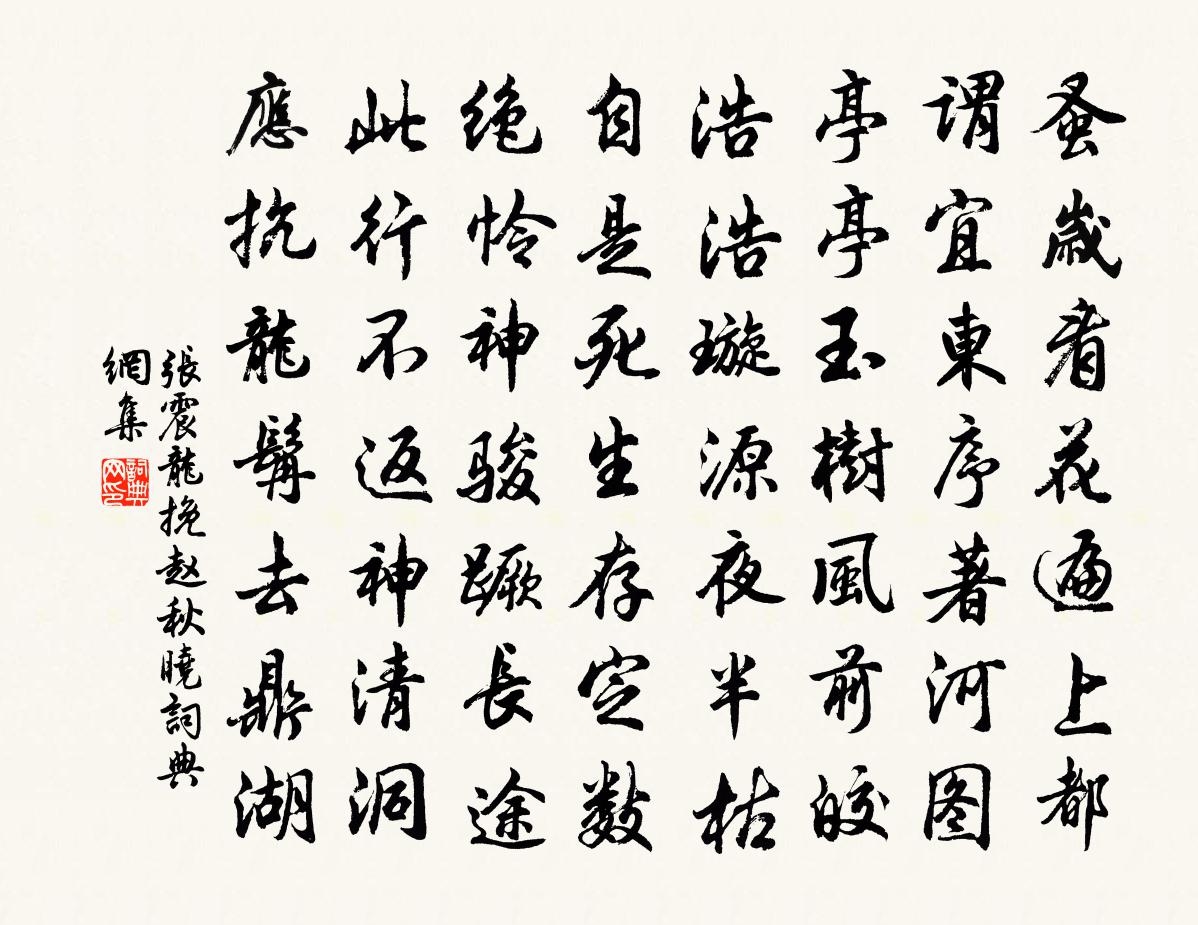 蚤歲看花遍上都
謂宜東序著河图
亭亭玉樹風前皎
浩浩璇源夜半枯
自是死生存定数
绝怜神骏蹶長途
此行不返神清洞
應抗龍髯去鼎湖
張震龍挽赵秋曉詞典
網集
詞典
网印